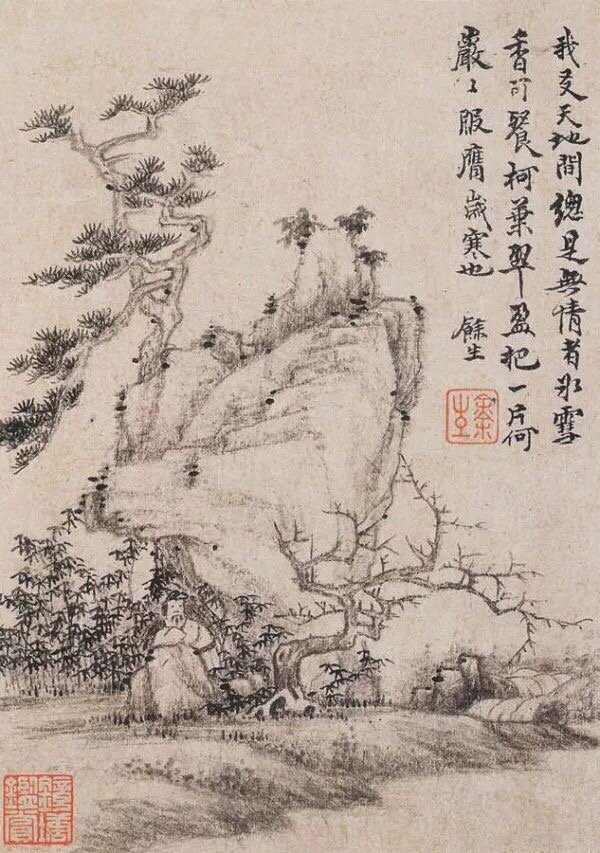 我爰天地間總是無情者冰雪
香可餐柯葉翠盈把一片何
巖〻服膺歲寒也
餘生
餘生